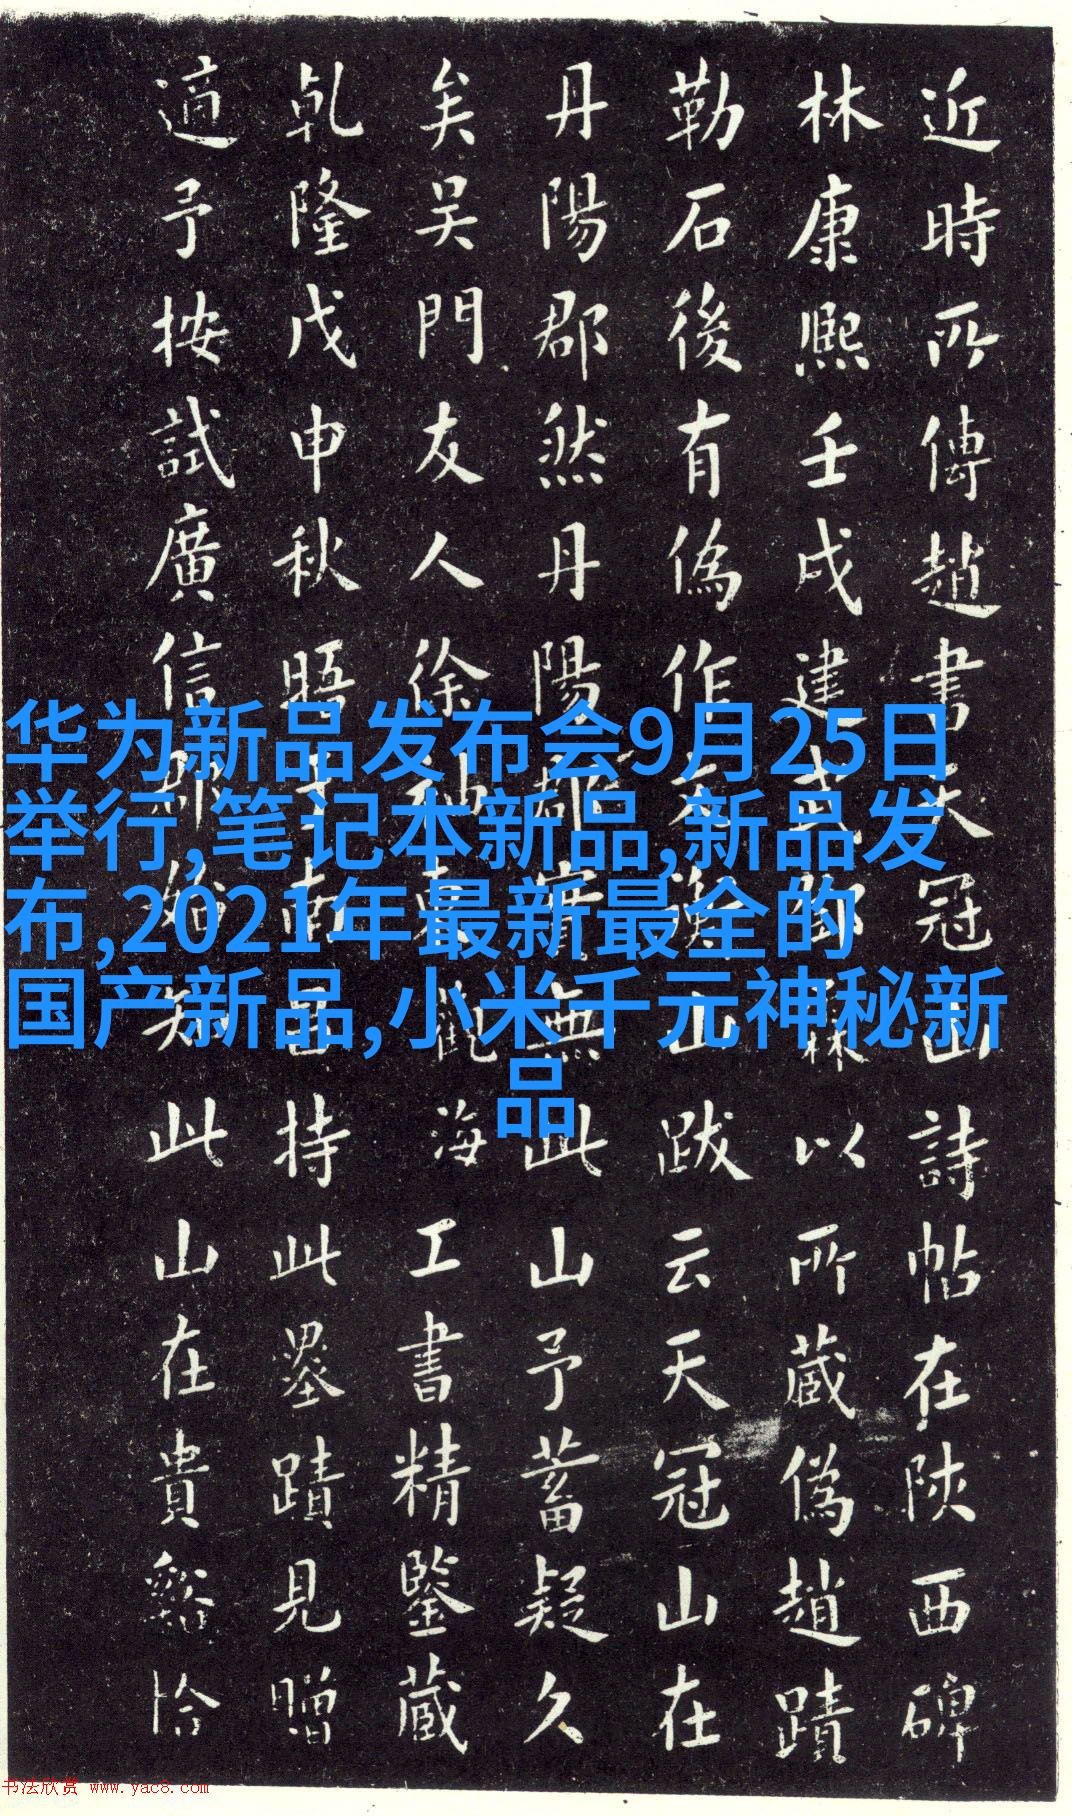 近時所傳趙書天冠山詩帖在陝西碑
林康熙壬戌建以所藏偽趙蹟
勒石後有偽作山跋云天冠山在
丹陽郡然丹陽郡實無此山予蓄疑久
矣吳門友人徐觀海工書精鑒藏
乾隆戊申秋晤于南昌持此墨蹟見贈
適予按試廣信郡始知此山在貴谿恰
华为新品发布会9月25日
举行,笔记本新品,新品发
布,2021年最新最全的
国产新品,小米千元神秘新
品
书法欣赏 www.yac8.com